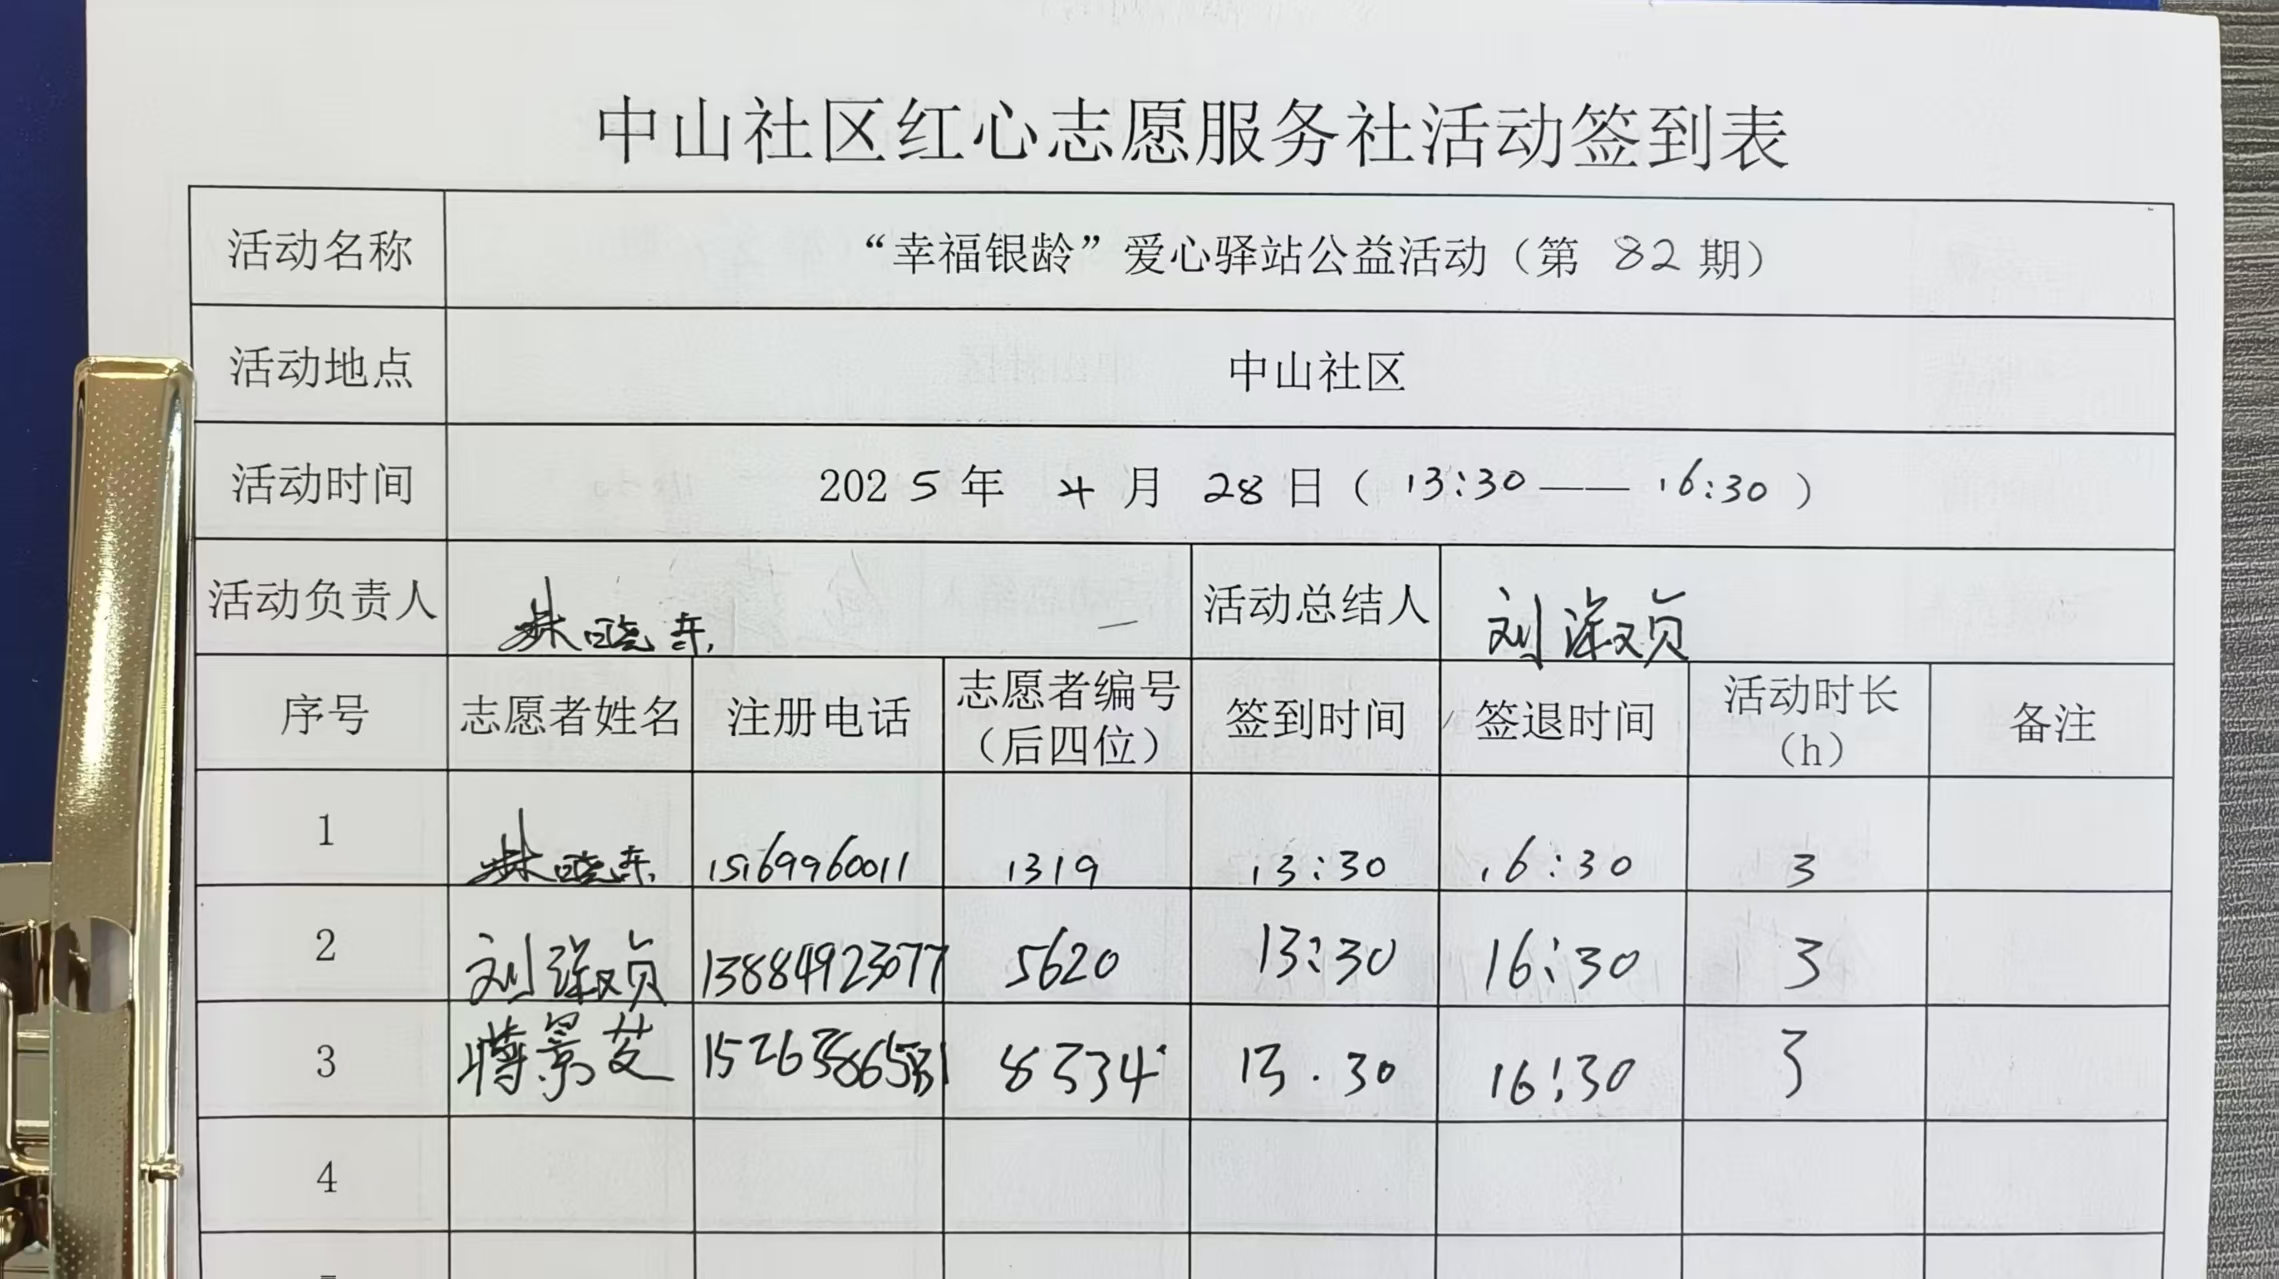 中山社区红心志愿服务社活动签到表
活动名称 “幸福银龄”爱心驿站公益活动（第 82 期）
活动地点 中山社区
活动时间 2025年 4月 28日（13:30——16:30）
活动负责人 林晓东 活动总结人 刘淑贞
序号 志愿者姓名 注册电话 志愿者编号（后四位） 签到时间 签退时间 活动时长（h） 备注
1 林晓东 15169960011 1319 13:30 16:30 3
2 刘淑贞 13884923077 5620 13:30 16:30 3
3 景 8334 13.30 16:30 3
4